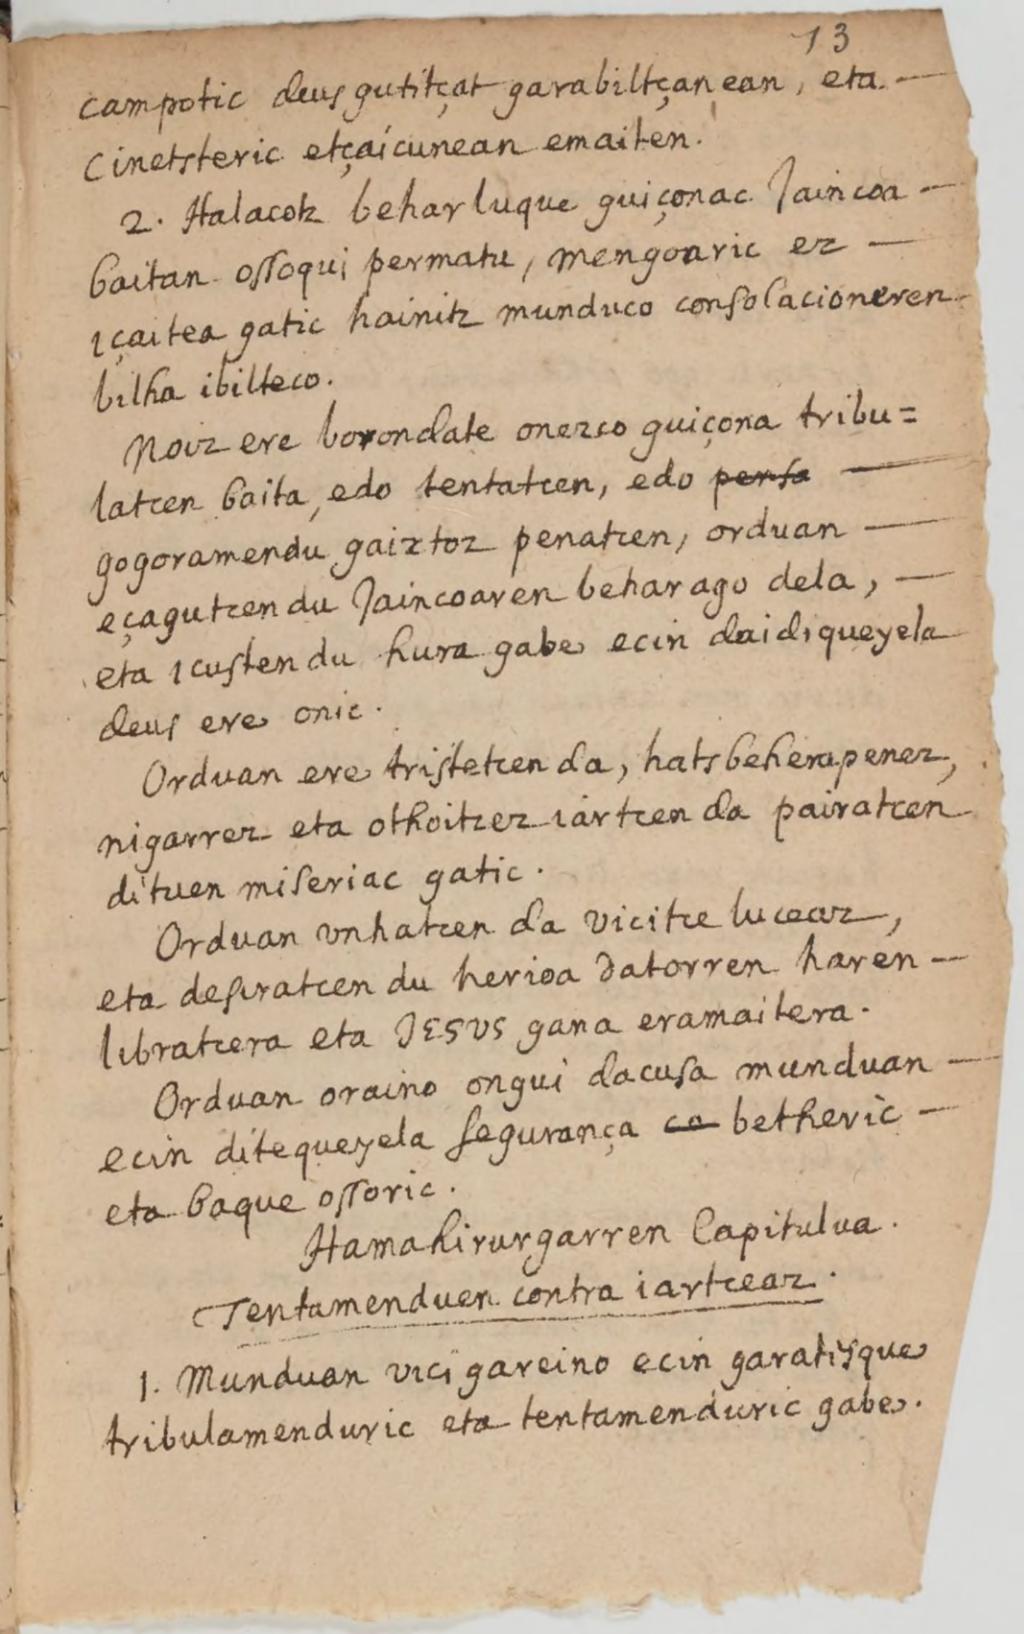 13
campotic deus gutitçat garabiltçanean, eta —
Cinetsteric etçaicunean emaiten.
2. Halacotz behar luque guiçonac Jaincoa —
baitan ossoqui permatu, mengoaric ez —
içaitea gatic hainitz munduco consolacioneren
bilha ibilteco.
Noiz ere borondate onezco guiçona tribu=
latcen baita, edo tentatcen, edo pensa —
gogoramendu gaiztoz penatcen, orduan —
eçagutcen du Jaincoaren beharago dela, —
eta icusten du hura gabe ecin daidiqueyela
deus ere onic.
Orduan ere tristetcen da, hatsbeherapenez,
nigarrez eta othoitzez iartcen da pairatcen
dituen miseriac gatic.
Orduan unhatcen da vicitce luceaz,
eta desiratcen du herioa datorren haren —
libratcera eta JESUS gana eramaitera.
Orduan oraino ongui dacusa munduan —
ecin ditequeyela segurança ca betheric —
eta baque ossoric.
Hamahirurgarren Capitulua.
Tentamenduen contra iartceaz.
1. Munduan vici gareino ecin garatisque
tribulamenduric eta tentamenduric gabe.